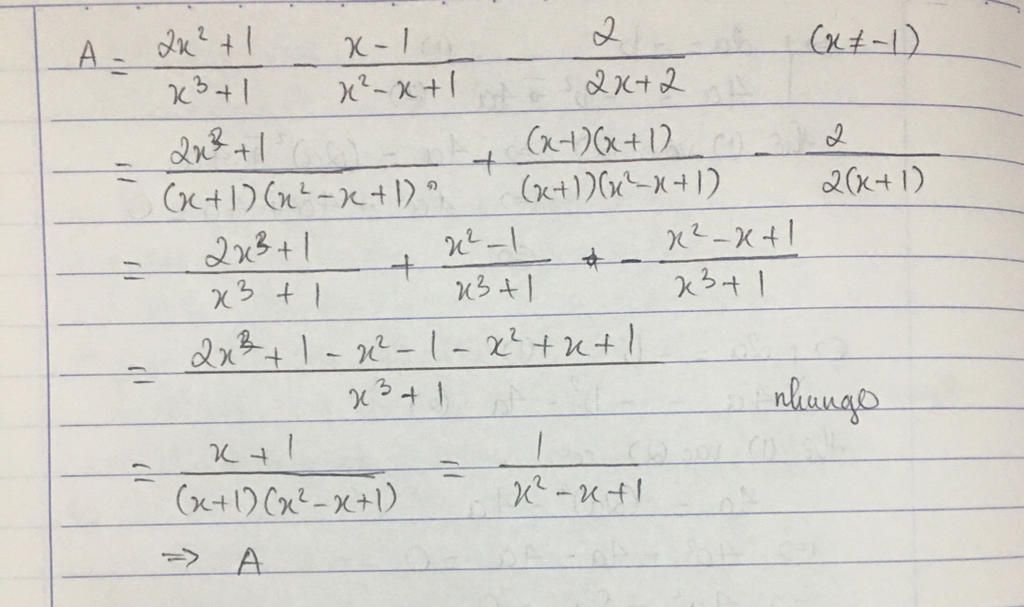 A = (2x² + 1)/(x³ + 1) − (x − 1)/(x² − x + 1) − 2/(2x + 2) (x ≠ −1)
= (2x² + 1)/((x + 1)(x² − x + 1)) + ((x − 1)(x + 1))/((x + 1)(x² − x + 1)) − 2/(2(x + 1))
= (2x² + 1)/(x³ + 1) + (x² − 1)/(x³ + 1) − (x² − x + 1)/(x³ + 1)
= (2x² + 1 − x² − 1 − x² + x + 1)/(x³ + 1)
nhungo
= (x + 1)/((x + 1)(x² − x + 1)) = 1/(x² − x + 1)
=> A